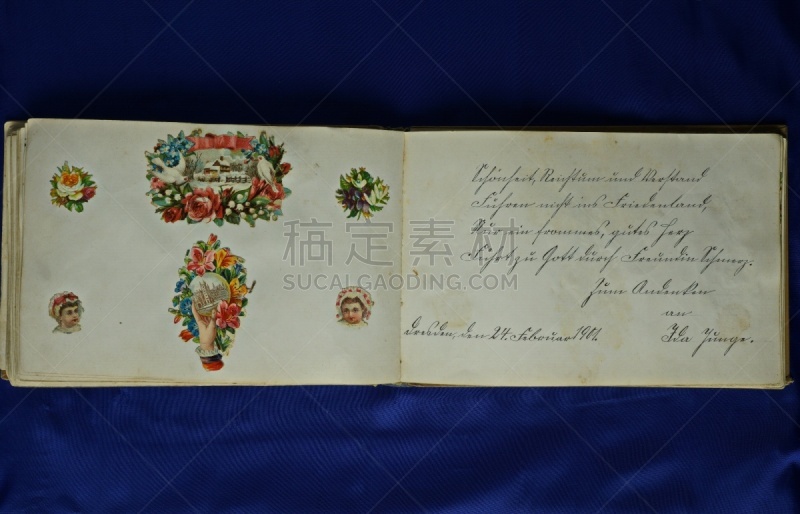 Schönheit, Reichtum und Verstand
Führen nicht ins Friedenland,
Nur ein frommes, gutes Herz
Führt zu Gott durch Freud und Schmerz.
Zum Andenken
an
Dresden, den 24. Februar 1901. Ida Junge.
搞定素材
SUCAIGAODING.COM